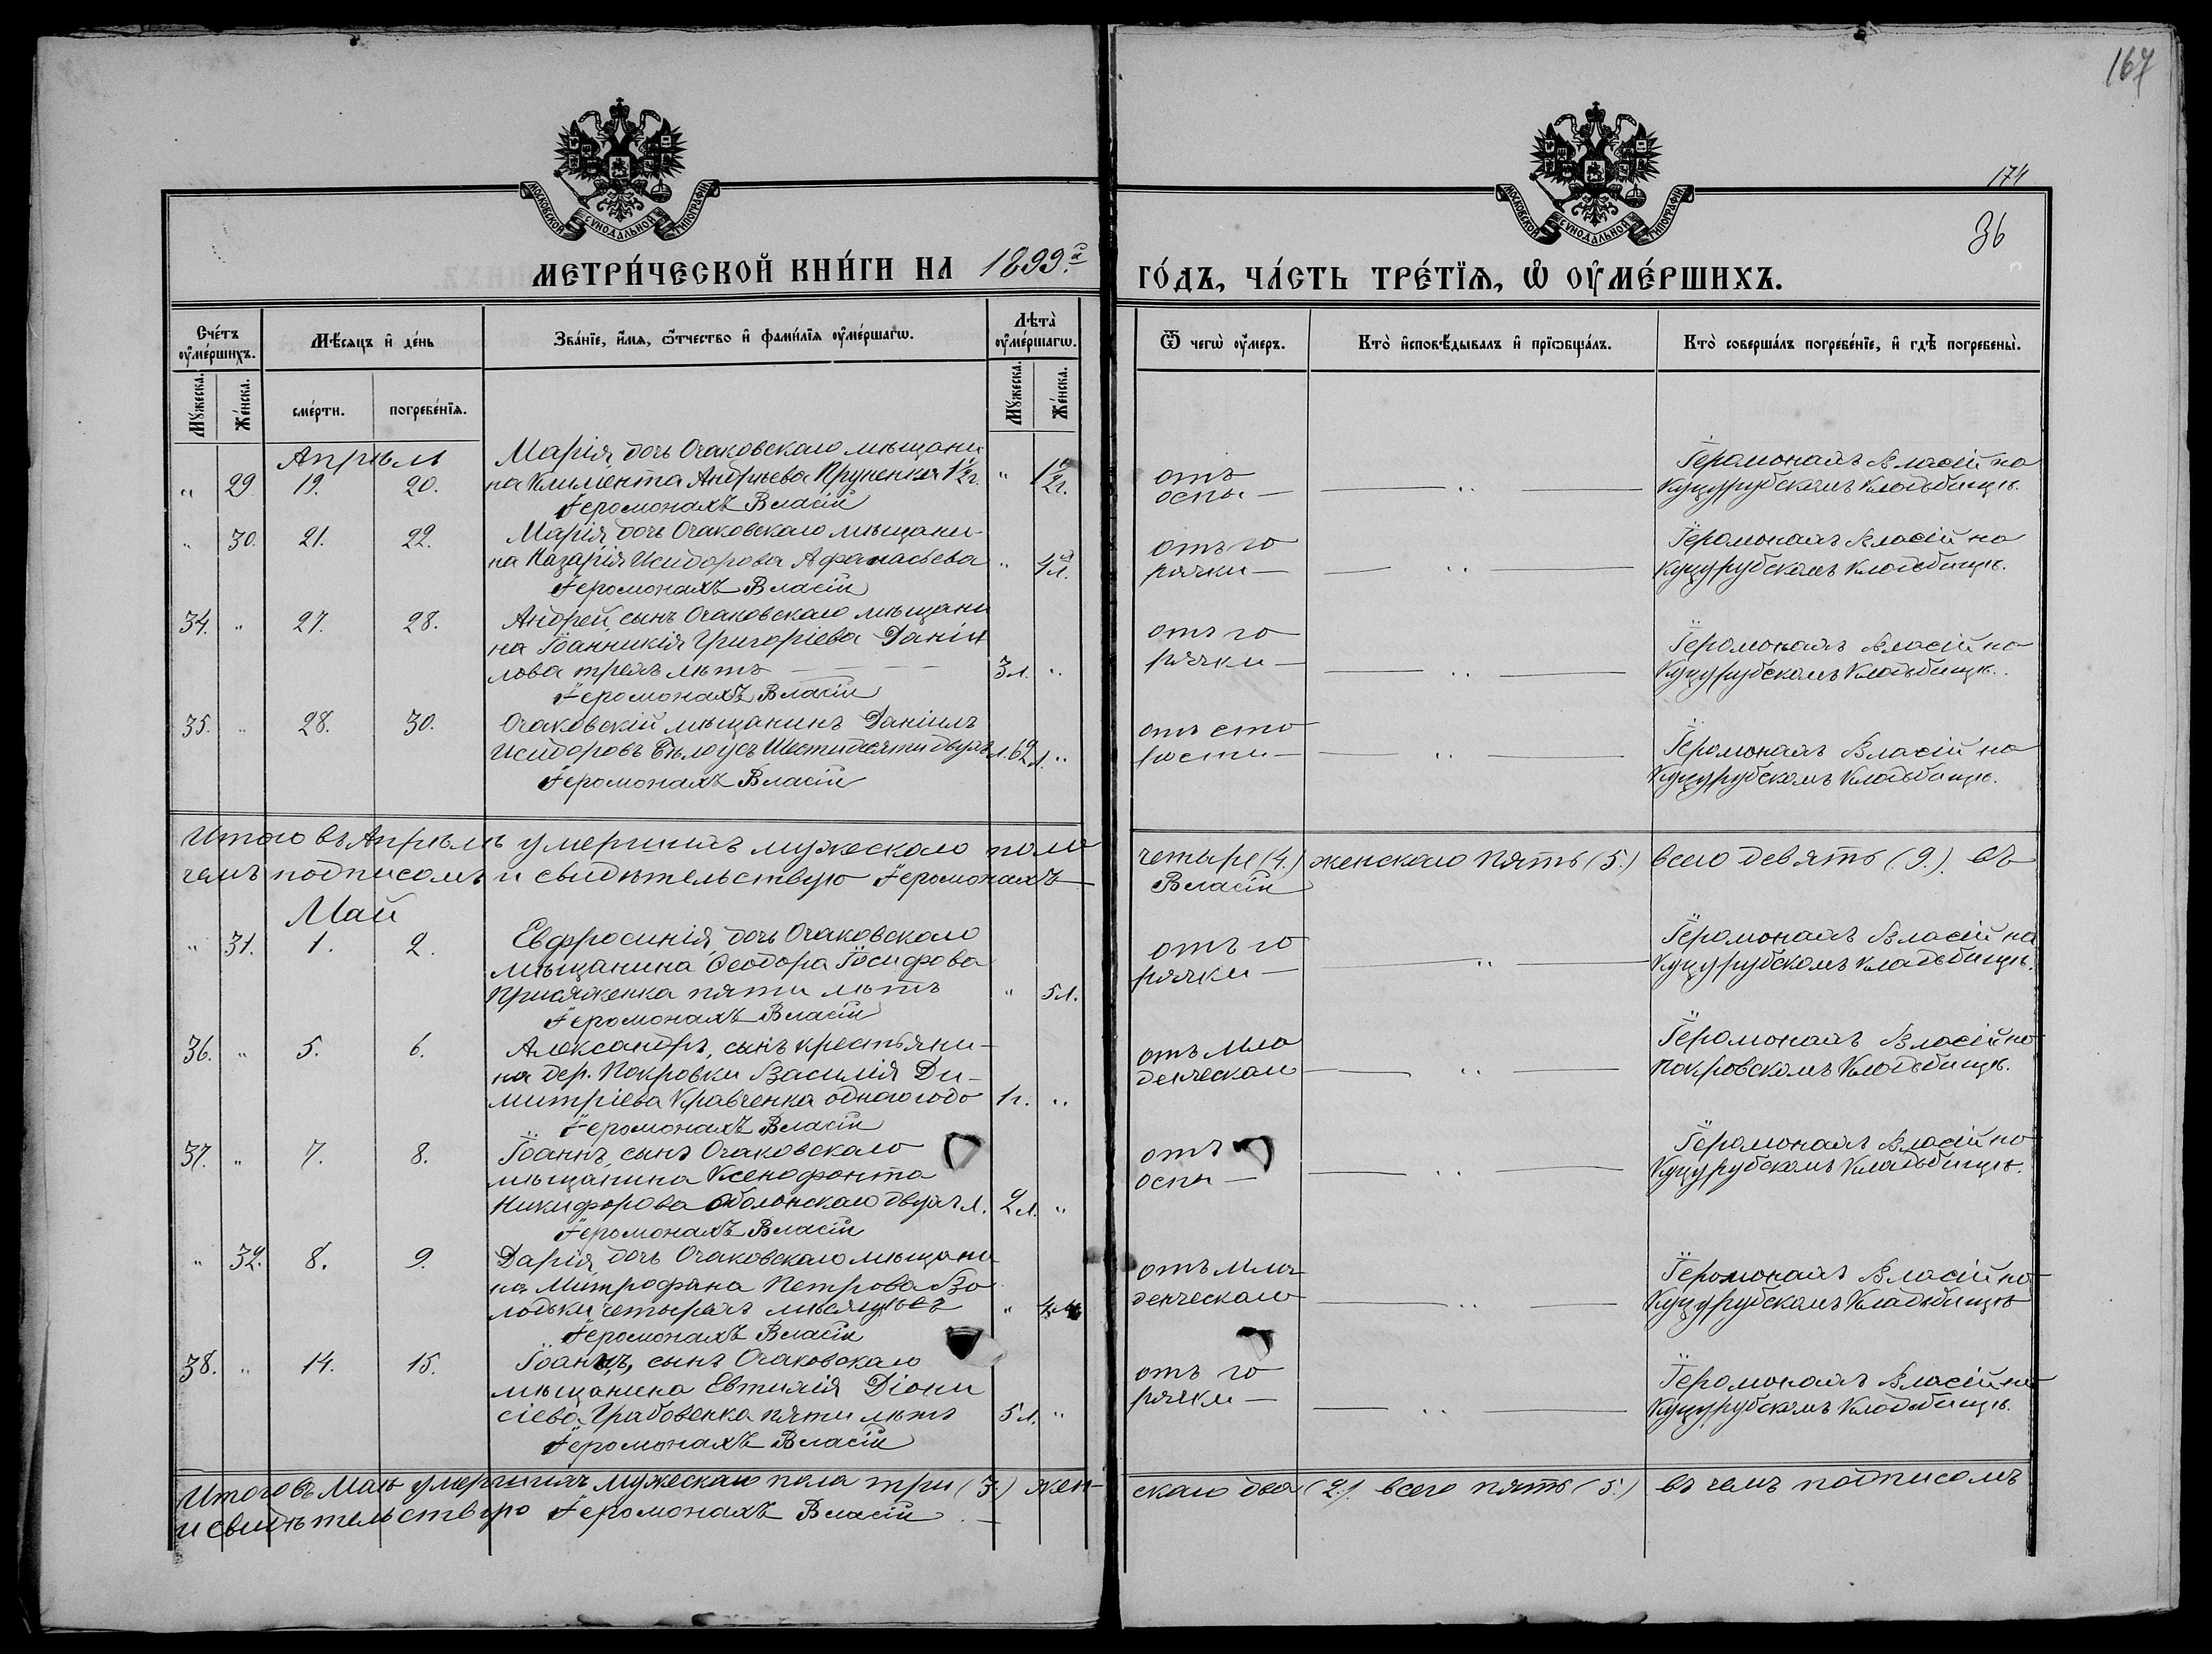 167
174
36
МОСКОВСКОЙ СѴНОДАЛЬНОЙ ТИПОГРАФІИ
МОСКОВСКОЙ СѴНОДАЛЬНОЙ ТИПОГРАФІИ
МЕТРИ́ЧЕСКОЙ КНИ́ГИ НА 1899.й ГО́ДЪ, ЧА́СТЬ ТРЕ́ТІѦ, Ѡ ОУ҆МЕ́РШИХЪ.
Сче́тъ оу҆ме́ршихъ.
Му́жеска.
Же́нска.
Мѣ́сяцъ и҆ де́нь
сме́рти.
погребе́нїѧ.
Зва́нїе, и҆́мѧ, ѻ҆́тчество и҆ фами́лїѧ оу҆ме́ршагѡ.
Лѣта̀ оу҆ме́ршагѡ.
Му́жеска.
Же́нска.
Ѿ чегѡ̀ оу҆́меръ.
Кто̀ и҆сповѣ́дывалъ и҆ прїѡбща́лъ.
Кто̀ соверша́лъ погребе́нїе, и҆ гдѣ̀ погребены̀.
Апрѣль
" 29 19. 20.
Марія, дочь Очаковскаго мѣщани
на Климента Андрѣева 1½ г. " 1½ г.
Іеромонахъ Власій
отъ
оспы —
Іеромонахъ Власій на
Куцурубскомъ Кладбищѣ.
" 30. 21. 22.
Марія, дочь Очаковскаго мѣщани-
на Назарія Исидорова Афанасьева " 4 л.
Іеромонахъ Власій
отъ го
рячки —
Іеромонахъ Власій на
Куцурубскомъ Кладбищѣ.
34. " 27. 28.
Андрей, сынъ Очаковскаго мѣщани
на Іоанникія Григоріева Даніи
лова трехъ лѣтъ 3 л. "
Іеромонахъ Власій
отъ го
рячки —
Іеромонахъ Власій на
Куцурубскомъ Кладбищѣ.
35. " 28. 30.
Очаковскій мѣщанинъ Даніилъ
Исидоровъ Бѣлоусъ Шестидесяти двухъ л. 62 л. "
Іеромонахъ Власій
отъ ста
рости —
Іеромонахъ Власій на
Куцурубскомъ Кладбищѣ.
Итого въ Апрѣлѣ умершихъ мужескаго пола четыре (4.) женскаго пять (5.) всего девять (9.). въ
чемъ подписомъ и свидѣтельствую Іеромонахъ Власій
Май
" 31. 1. 2.
Евфросинія, дочь Очаковскаго
мѣщанина Ѳеодора Іосифова
Присяженка пяти лѣтъ " 5 л.
Іеромонахъ Власій
отъ го
рячки —
Іеромонахъ Власій на
Куцурубскомъ Кладбищѣ.
36. " 5. 6.
Александръ, сынъ крестьяни-
на дер. Покровки Василія Ди-
митріева Кравченка одного года 1 г. "
Іеромонахъ Власій
отъ мла
денческой
Іеромонахъ Власій на
Покровскомъ Кладбищѣ.
37. " 7. 8.
Іоаннъ, сынъ Очаковскаго
мѣщанина Ксенофонта
Никифорова Оболонскаго двухъ л. 2 л. "
Іеромонахъ Власій
отъ
оспы —
Іеромонахъ Власій на
Куцурубскомъ Кладбищѣ.
" 32. 8. 9.
Дарія, дочь Очаковскаго мѣщани
на Митрофана Петрова Во
лодьки четырехъ мѣсяцевъ " 4 м.
Іеромонахъ Власій
отъ мла
денческаго
Іеромонахъ Власій на
Куцурубскомъ Кладбищѣ
38. " 14. 15.
Іоаннъ, сынъ Очаковскаго
мѣщанина Евтихія Діони
сіева Грабовенка пяти лѣтъ 5 л. "
Іеромонахъ Власій
отъ го
рячки —
Іеромонахъ Власій на
Куцурубскомъ Кладбищѣ.
Итого въ Маѣ умершихъ мужескаго пола три (3.) жен-
скаго два (2.). всего пять (5.) въ чемъ подписомъ
и свидѣтельствую Іеромонахъ Власій